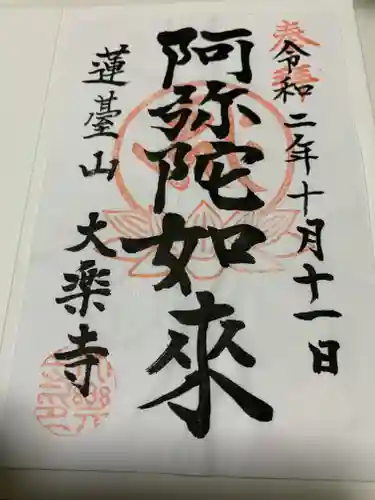 奉拝
令和二年十月十一日
阿弥陀如來
蓮臺山
大楽寺